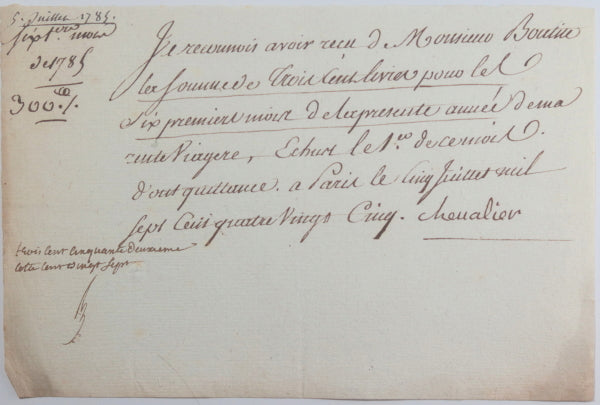 5. Juillet 1785.
six p.ers mois
de 1785
300.ᵗᵗ/.
Je reconnois avoir reçu de Monsieur Boutin
la somme de Trois Cent livres pour les
six premiers mois de la presente année de ma
rente Viagere, Echus le 1.er de ce mois.
dont quittance. a Paris le Cinq Juillet mil
sept Cent quatre Vingt Cinq. Chevalier
trois Cent Cinquante deuxieme
Cotte Cent vingt Sept